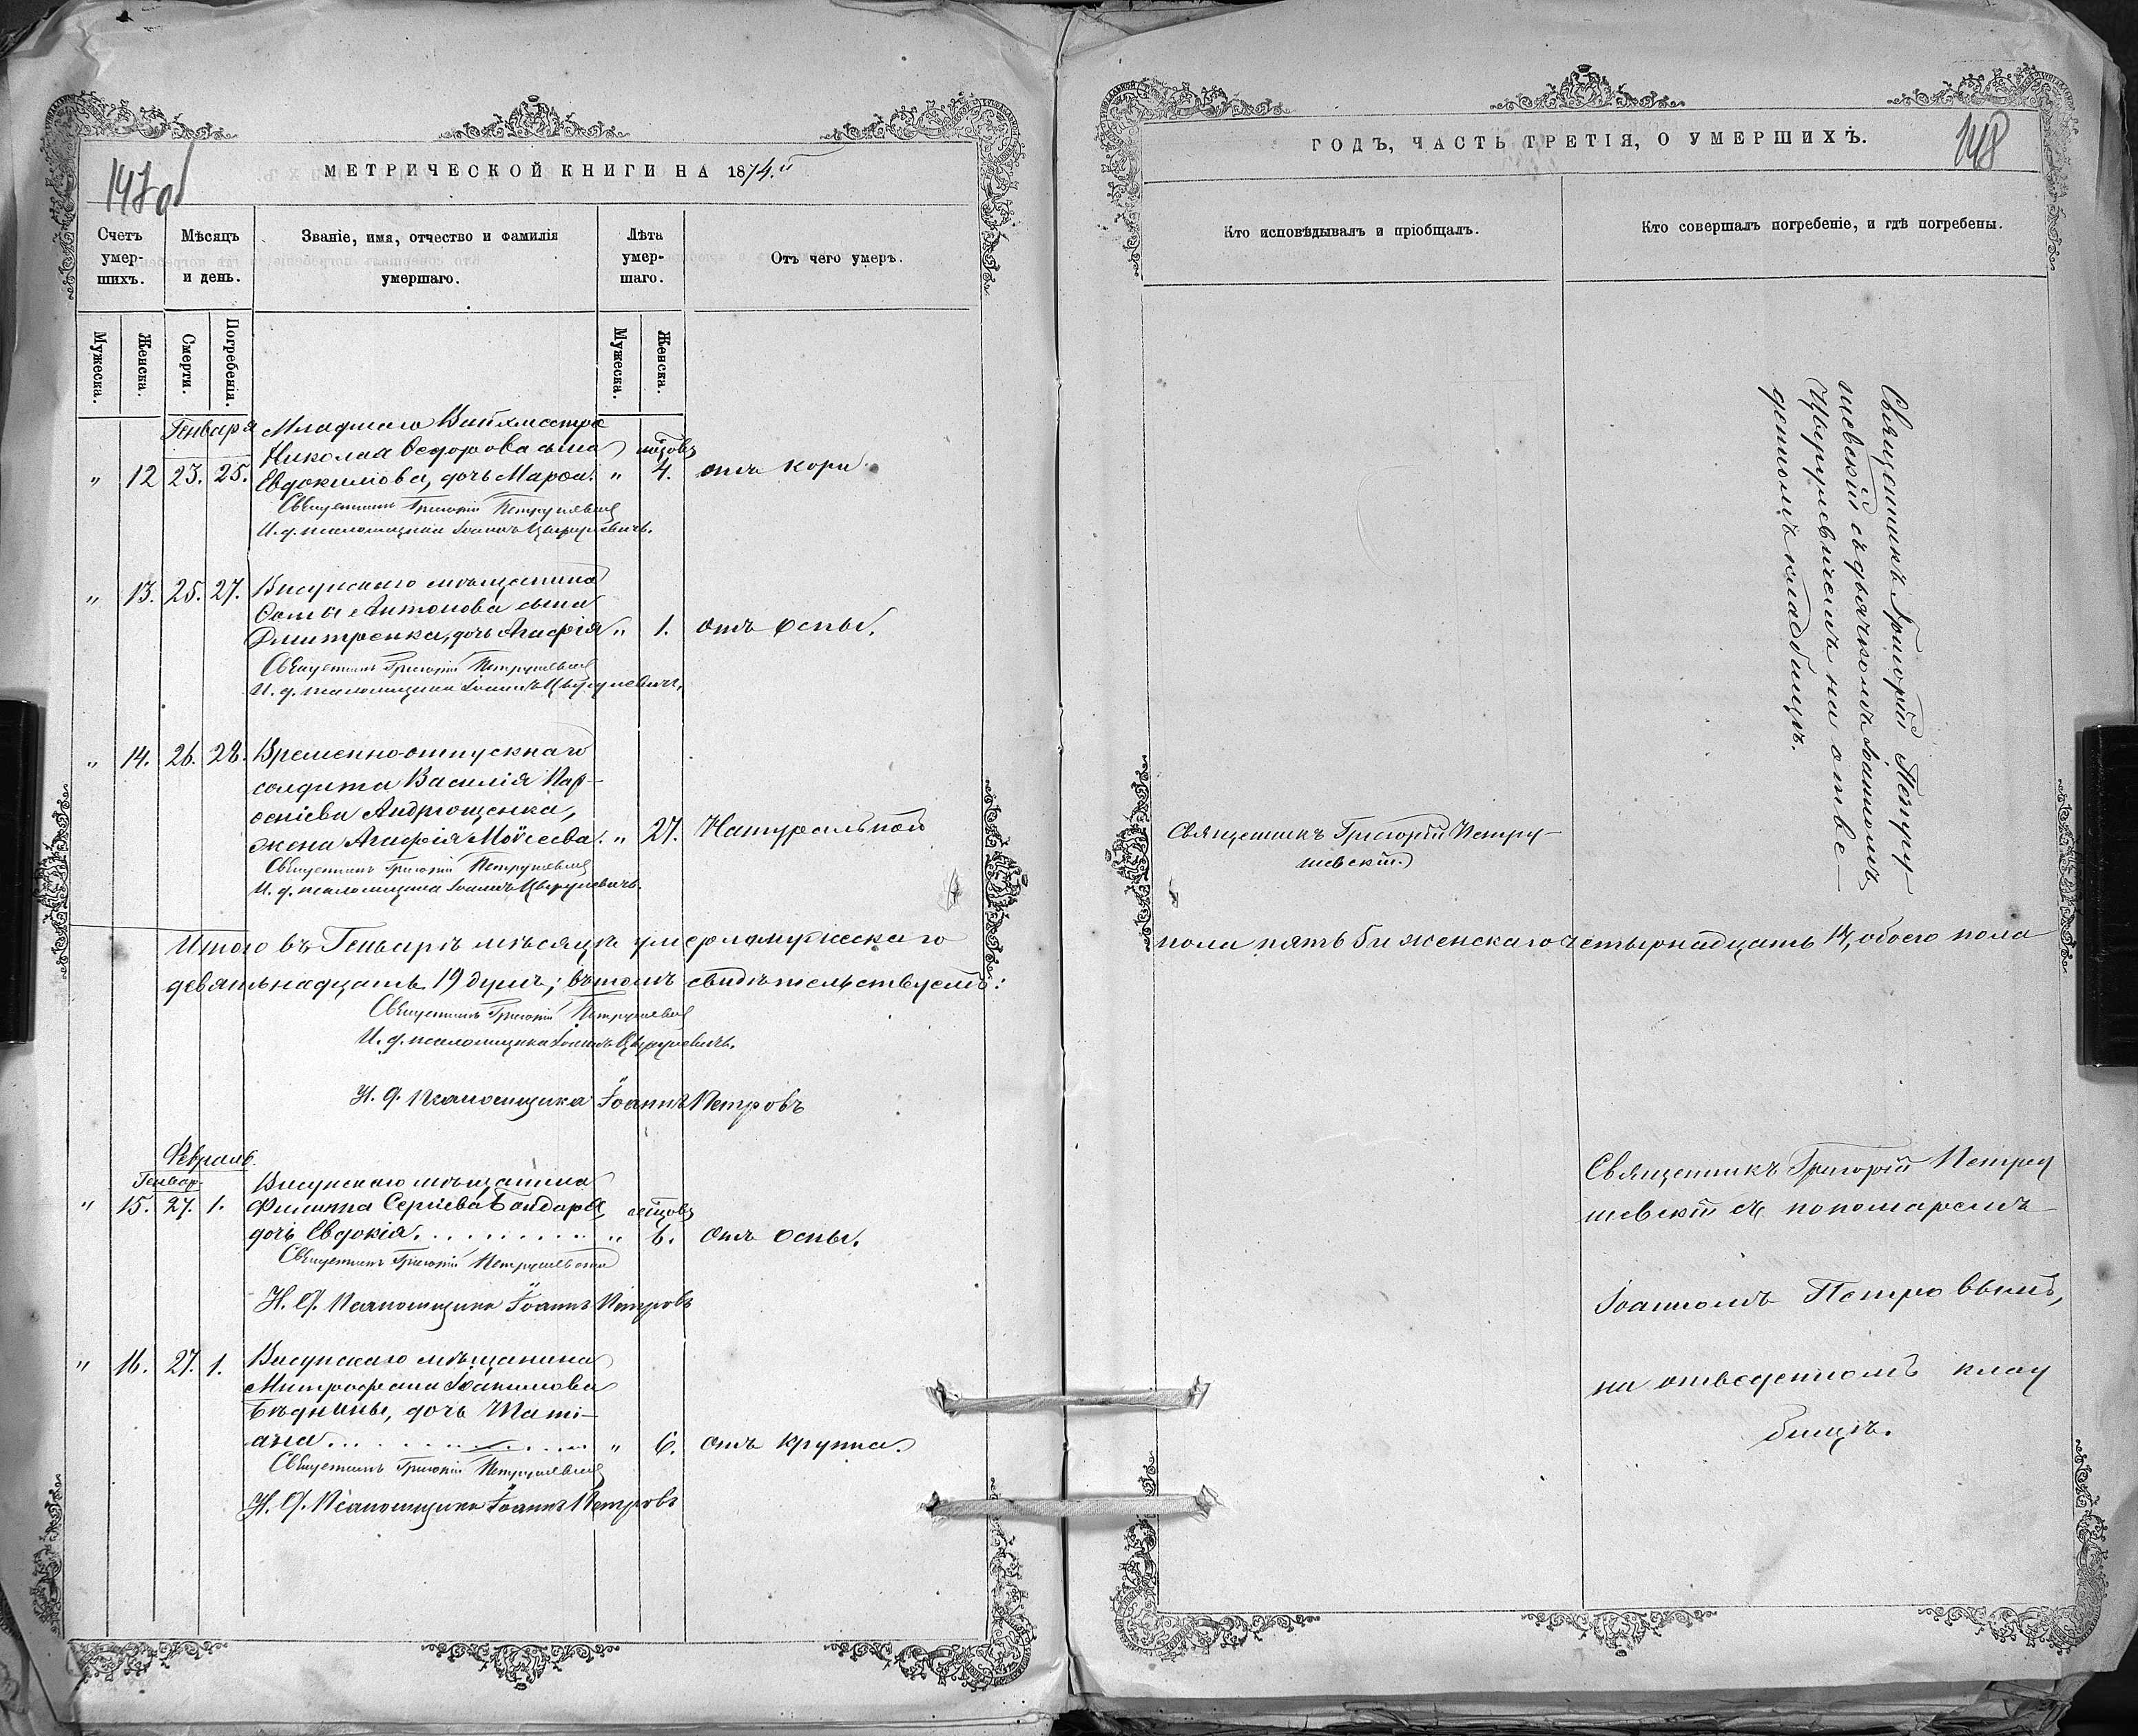 147 об
МЕТРИЧЕСКОЙ КНИГИ НА 1874.й
Счетъ умер- шихъ.
Мѣсяцъ и день.
Званіе, имя, отчество и фамилія умершаго.
Лѣта умер- шаго.
Отъ чего умеръ.
Мужеска.
Женска.
Смерти.
Погребенія.
Мужеска.
Женска.
Генваря
Младшаго Вахмистра
Николая Ѳедорова сына мѣсцовъ
" 12 23. 25. Евдокимова, дочь Марѳа. " 4. отъ кори.
Священникъ Григорій Петрушевскій
И. д. псаломщика Іоаннъ Цыгулевичъ.
" 13. 25. 27. Висунскаго мѣщанина
Ѳомы Антонова сына
Дмитренка, дочь Агафія " 1. отъ оспы.
Священникъ Григорій Петрушевскій
И. д. псаломщика Іоаннъ
" 14. 26. 28. Временно-отпускнаго
солдата Василія Пар-
ѳеніева Андрющенка,
жена Агафія Моѵсеева. " 27. Натуральной
Священникъ Григорій Петрушевскій
И. д. псаломщика Іоаннъ
Итого въ Генварѣ мѣсяцѣ умерло мужескаго
девятьнадцать 19 душъ; въ томъ свидѣтельствуемъ:
Священникъ Григорій Петрушевскій
И. д. псаломщика Іоаннъ
И. д. Псаломщика Іоаннъ Петровъ
Февраль.
Генвар.
Висунскаго мѣщанина
" 15. 27. 1. Филиппа Сергіева Бондаря, мѣсцовъ
дочь Евдокія. . . . . . . . . . " 6. отъ оспы.
Священникъ Григорій Петрушевскій
И. д. Псаломщика Іоаннъ Петровъ
" 16. 27. 1. Висунскаго мѣщанина
Митрофана Іоакимова
Бѣднины, дочь Таті-
ана . . . . . . . . . . " 6. отъ крупа.
Священникъ Григорій Петрушевскій
И. д. Псаломщика Іоаннъ Петровъ
148
ГОДЪ, ЧАСТЬ ТРЕТІЯ, О УМЕРШИХЪ.
Кто исповѣдывалъ и пріобщалъ.
Кто совершалъ погребеніе, и гдѣ погребены.
Священникъ Григорій Петру-
шевскій съ дьячкомъ Іоанномъ
на отве-
денномъ кладбищѣ.
Священникъ Григорій Петру-
шевскій
пола пять 5 и женскаго четырнадцать 14, обоего пола
Священникъ Григорій Петру
шевскій съ пономаремъ
Іоанномъ Петровымъ,
на отведенномъ клад
бищѣ.